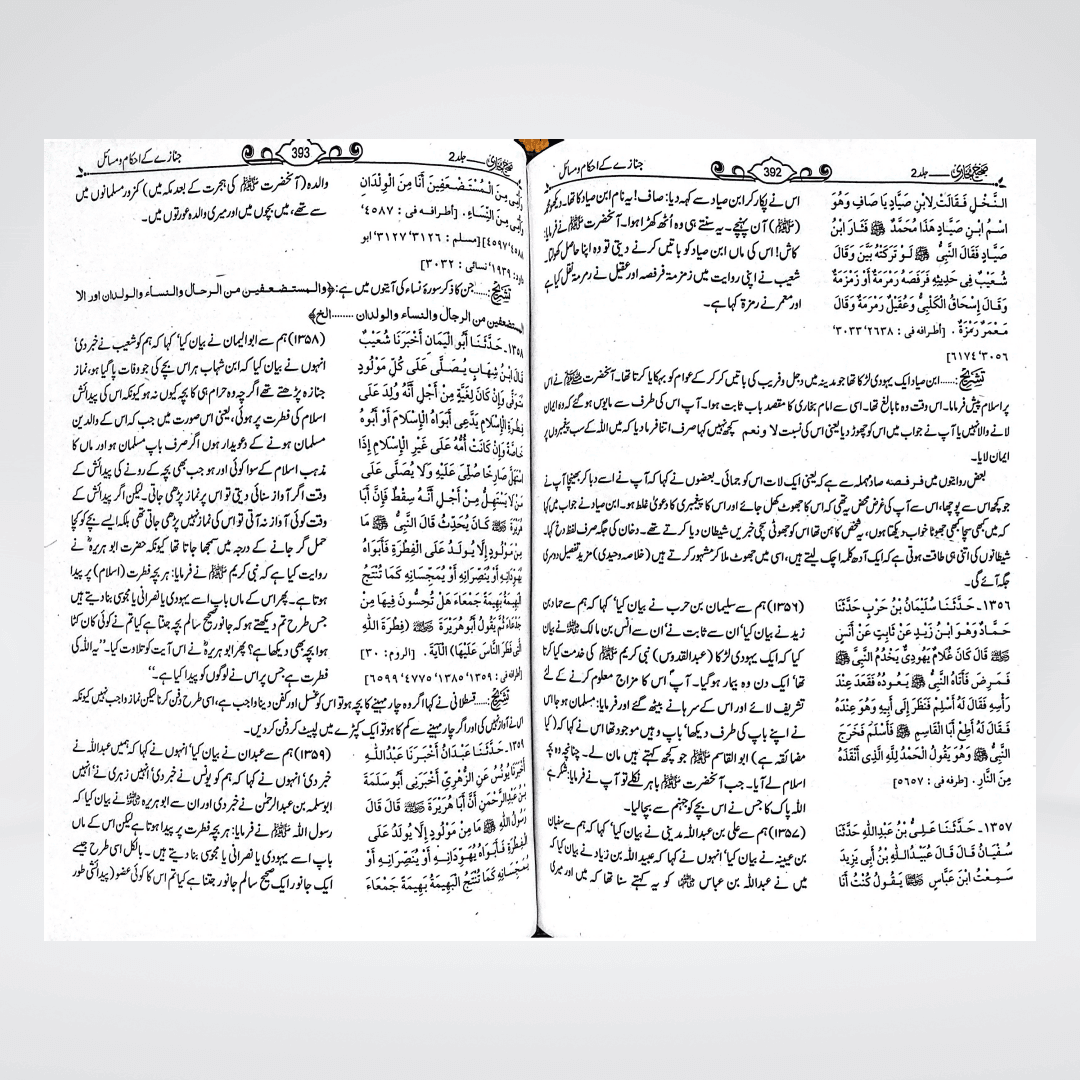 صحیح بخاری جلد 2 392 جنازے کے احکام و مسائل
النَّخْلِ فَقَالَتْ لِابْنِ صَيَّادٍ يَا صَافِ وَهُوَ
اسْمُ ابْنِ صَيَّادٍ هَذَا مُحَمَّدٌ ﷺ فَثَارَ ابْنُ
صَيَّادٍ فَقَالَ النَّبِيُّ ﷺ لَوْ تَرَكَتْهُ بَيَّنَ وَقَالَ
شُعَيْبٌ فِي حَدِيثِهِ فَرَفَصَهُ رَمْرَمَةٌ أَوْ زَمْزَمَةٌ
وَقَالَ إِسْحَاقُ الْكَلْبِيُّ وَعُقَيْلٌ رَمْرَمَةٌ وَقَالَ
مَعْمَرٌ رَمْزَةٌ . [أطرافه في : ٢٦٣٨، ٣٠٣٣،
٣٠٥٦، ٦١٧٤]
اس نے پکار کر ابن صیاد سے کہہ دیا: صاف! یہ نام ابن صیاد کا تھا۔ دیکھو محمد
(ﷺ) آن پہنچے۔ یہ سنتے ہی وہ اٹھ کھڑا ہوا۔ آنحضرت ﷺ نے فرمایا:
کاش! اس کی ماں ابن صیاد کو باتیں کرنے دیتی تو وہ اپنا حال کھولتا۔
شعیب نے اپنی روایت میں زمزمة فرفصه اور عقیل نے رمرمة نقل کیا ہے
اور معمر نے رمزة کہا ہے۔
تشریح:...... ابن صیاد ایک یہودی لڑکا تھا جو مدینہ میں دجل و فریب کی باتیں کر کر کے عوام کو بہکایا کرتا تھا۔ آنحضرت ﷺ نے اس
پر اسلام پیش فرمایا۔ اس وقت وہ نابالغ تھا۔ اسی سے امام بخاری کا مقصد باب ثابت ہوا۔ آپ اس کی طرف سے مایوس ہو گئے کہ وہ ایمان
لانے والا نہیں یا آپ نے جواب میں اس کو چھوڑ دیا یعنی اس کی نسبت لا و نعم کچھ نہیں کہا صرف اتنا فرما دیا کہ میں اللہ کے سب پیغمبروں پر
ایمان لایا۔
بعض روایتوں میں فرفصه صاد مہملہ سے ہے یعنی ایک لات اس کو جمائی۔ بعضوں نے کہا کہ آپ نے اسے دبا کر بھینچا آپ نے
جو کچھ اس سے پوچھا، اس سے آپ کی غرض محض یہ تھی کہ اس کا جھوٹ کھل جائے اور اس کا پیغمبری کا دعویٰ غلط ہو۔ ابن صیاد نے جواب میں کہا
کہ میں کبھی سچا کبھی جھوٹا خواب دیکھتا ہوں، یہ شخص کاہن تھا اس کو جھوٹی سچی خبریں شیطان دیا کرتے تھے۔ دخان کی جگہ صرف لفظ دخ کہا۔
شیطانوں کی اتنی ہی طاقت ہوتی ہے کہ ایک آدھ کلمہ اچک لیتے ہیں، اسی میں جھوٹ ملا کر مشہور کرتے ہیں (خلاصہ وحیدی) مزید تفصیل دوسری
جگہ آئے گی۔
١٣٥٦۔ حَدَّثَنَا سُلَيْمَانُ بْنُ حَرْبٍ حَدَّثَنَا
حَمَّادٌ وَهُوَ ابْنُ زَيْدٍ عَنْ ثَابِتٍ عَنْ أَنَسٍ
ﷺ قَالَ كَانَ غُلَامٌ يَهُودِيٌّ يَخْدُمُ النَّبِيَّ ﷺ
فَمَرِضَ فَأَتَاهُ النَّبِيُّ ﷺ يَعُودُهُ فَقَعَدَ عِنْدَ
رَأْسِهِ فَقَالَ لَهُ أَسْلِمْ فَنَظَرَ إِلَى أَبِيهِ وَهُوَ عِنْدَهُ
فَقَالَ لَهُ أَطِعْ أَبَا الْقَاسِمِ ﷺ فَأَسْلَمَ فَخَرَجَ
النَّبِيُّ ﷺ وَهُوَ يَقُولُ الْحَمْدُ لِلَّهِ الَّذِي أَنْقَذَهُ
مِنَ النَّارِ . [طرفه في : ٥٦٥٧]
(١٣٥٦) ہم سے سلیمان بن حرب نے بیان کیا، کہا کہ ہم سے حماد بن
زید نے بیان کیا، ان سے ثابت نے، ان سے انس بن مالک نے بیان
کیا کہ ایک یہودی لڑکا (عبدالقدوس) نبی کریم ﷺ کی خدمت کیا کرتا
تھا، ایک دن وہ بیمار ہو گیا۔ آپ اس کا مزاج معلوم کرنے کے لئے
تشریف لائے اور اس کے سرہانے بیٹھ گئے اور فرمایا: مسلمان ہو جا اس
نے اپنے باپ کی طرف دیکھا، باپ وہیں موجود تھا اس نے کہا کہ (کیا
مضائقہ ہے) ابو القاسم ﷺ جو کچھ کہتے ہیں مان لے۔ چنانچہ وہ بچہ
اسلام لے آیا۔ جب آنحضرت ﷺ باہر نکلے تو آپ نے فرمایا: شکر ہے
اللہ پاک کا جس نے اس بچے کو جہنم سے بچا لیا۔
١٣٥٧۔ حَدَّثَنَا عَلِيُّ بْنُ عَبْدِ اللَّهِ حَدَّثَنَا
سُفْيَانُ قَالَ قَالَ عُبَيْدُ اللَّهِ بْنُ أَبِي يَزِيدَ
سَمِعْتُ ابْنَ عَبَّاسٍ يَقُولُ كُنْتُ أَنَا
(١٣٥٧) ہم سے علی بن عبداللہ مدینی نے بیان کیا، کہا کہ ہم سے سفیان
بن عیینہ نے بیان کیا، انہوں نے کہا کہ عبیداللہ بن زیاد نے بیان کیا کہ
میں نے عبداللہ بن عباس کو یہ کہتے سنا تھا کہ میں اور میری
صحیح بخاری جلد 2 393 جنازے کے احکام و مسائل
وَأُمِّي مِنَ الْمُسْتَضْعَفِينَ أَنَا مِنَ الْوِلْدَانِ
وَأُمِّي مِنَ النِّسَاءِ . [أطرافه في : ٤٥٨٧،
٤٥٨٨، ٤٥٩٧] [مسلم : ٣١٢٦، ٣١٢٧، ابو
داود: ١٩٣٩، نسائی : ٣٠٣٢]
والدہ (آنحضرت ﷺ کی ہجرت کے بعد مکہ میں) کمزور مسلمانوں میں
سے تھے، میں بچوں میں اور میری والدہ عورتوں میں۔
تشریح:...... جن کا ذکر سورۂ نساء کی آیتوں میں ہے: ﴿والمستضعفين من الرجال والنساء والولدان اور الا
المستضعفين من الرجال والنساء والولدان ........ الخ﴾
١٣٥٨۔ حَدَّثَنَا أَبُو الْيَمَانِ أَخْبَرَنَا شُعَيْبٌ
قَالَ ابْنُ شِهَابٍ يُصَلَّى عَلَى كُلِّ مَوْلُودٍ
مُتَوَفًّى وَإِنْ كَانَ لِغَيَّةٍ مِنْ أَجْلِ أَنَّهُ وُلِدَ عَلَى
فِطْرَةِ الْإِسْلَامِ يَدَّعِي أَبَوَاهُ الْإِسْلَامَ أَوْ أَبُوهُ
خَاصَّةً وَإِنْ كَانَتْ أُمُّهُ عَلَى غَيْرِ الْإِسْلَامِ إِذَا
اسْتَهَلَّ صَارِخًا صُلِّيَ عَلَيْهِ وَلَا يُصَلَّى عَلَى
مَنْ لَا يَسْتَهِلُّ مِنْ أَجْلِ أَنَّهُ سِقْطٌ فَإِنَّ أَبَا
هُرَيْرَةَ كَانَ يُحَدِّثُ قَالَ النَّبِيُّ ﷺ مَا
مِنْ مَوْلُودٍ إِلَّا يُولَدُ عَلَى الْفِطْرَةِ فَأَبَوَاهُ
يُهَوِّدَانِهِ أَوْ يُنَصِّرَانِهِ أَوْ يُمَجِّسَانِهِ كَمَا تُنْتَجُ
الْبَهِيمَةُ بَهِيمَةً جَمْعَاءَ هَلْ تُحِسُّونَ فِيهَا مِنْ
جَدْعَاءَ ثُمَّ يَقُولُ أَبُو هُرَيْرَةَ (فِطْرَةَ اللَّهِ
الَّتِي فَطَرَ النَّاسَ عَلَيْهَا) الْآيَةَ . [الروم : ٣٠]
[أطرافه في : ١٣٥٩، ١٣٨٥، ٤٧٧٥، ٦٥٩٩]
(١٣٥٨) ہم سے ابو الیمان نے بیان کیا، کہا کہ ہم کو شعیب نے خبر دی،
انہوں نے بیان کیا کہ ابن شہاب ہر اس بچے کی جو وفات پا گیا ہو، نماز
جنازہ پڑھتے تھے اگرچہ وہ حرام ہی کا بچہ کیوں نہ ہو کیونکہ اس کی پیدائش
اسلام کی فطرت پر ہوئی، یعنی اس صورت میں جب کہ اس کے والدین
مسلمان ہونے کے دعویدار ہوں اگر صرف باپ مسلمان ہو اور ماں کا
مذہب اسلام کے سوا کوئی اور ہو جب بھی بچہ کے رونے کی پیدائش کے
وقت اگر آواز سنائی دیتی تو اس پر نماز پڑھی جاتی۔ لیکن اگر پیدائش کے
وقت کوئی آواز نہ آتی تو اس کی نماز نہیں پڑھی جاتی تھی بلکہ ایسے بچے کو کچا
حمل گر جانے کے درجہ میں سمجھا جاتا تھا کیونکہ حضرت ابو ہریرہ نے
روایت کیا ہے کہ نبی کریم ﷺ نے فرمایا: ہر بچہ فطرت (اسلام) پر پیدا
ہوتا ہے۔ پھر اس کے ماں باپ اسے یہودی یا نصرانی یا مجوسی بنا دیتے ہیں
جس طرح تم دیکھتے ہو کہ جانور صحیح سالم بچہ جنتا ہے کیا تم نے کوئی کان کٹا
ہوا بچہ بھی دیکھا ہے؟ پھر ابو ہریرہ نے اس آیت کو تلاوت کیا۔ ”یہ اللہ کی
فطرت ہے جس پر اس نے لوگوں کو پیدا کیا ہے۔“
تشریح:...... قسطلانی نے کہا اگر وہ چار مہینے کا بچہ ہو تو اس کو غسل اور کفن دینا واجب ہے، اسی طرح دفن کرنا لیکن نماز واجب نہیں کیونکہ
اس نے آواز نہیں کی اور اگر چار مہینے سے کم کا ہو تو ایک کپڑے میں لپیٹ کر دفن کر دیں۔
١٣٥٩۔ حَدَّثَنَا عَبْدَانُ أَخْبَرَنَا عَبْدُ اللَّهِ
أَخْبَرَنَا يُونُسُ عَنِ الزُّهْرِيِّ أَخْبَرَنِي أَبُو سَلَمَةَ
بْنُ عَبْدِ الرَّحْمَنِ أَنَّ أَبَا هُرَيْرَةَ قَالَ قَالَ
رَسُولُ اللَّهِ ﷺ مَا مِنْ مَوْلُودٍ إِلَّا يُولَدُ عَلَى
الْفِطْرَةِ فَأَبَوَاهُ يُهَوِّدَانِهِ أَوْ يُنَصِّرَانِهِ أَوْ
يُمَجِّسَانِهِ كَمَا تُنْتَجُ الْبَهِيمَةُ بَهِيمَةً جَمْعَاءَ
(١٣٥٩) ہم سے عبدان نے بیان کیا، انہوں نے کہا کہ ہمیں عبداللہ نے
خبر دی، انہوں نے کہا کہ ہم کو یونس نے خبر دی، انہیں زہری نے، انہیں
ابو سلمہ بن عبدالرحمٰن نے خبر دی اور ان سے ابو ہریرہ نے بیان کیا کہ
رسول اللہ ﷺ نے فرمایا: ہر بچہ فطرت پر پیدا ہوتا ہے لیکن اس کے ماں
باپ اسے یہودی یا نصرانی یا مجوسی بنا دیتے ہیں۔ بالکل اسی طرح جیسے
ایک جانور ایک صحیح سالم جانور جنتا ہے کیا تم اس کا کوئی عضو (پیدائشی طور